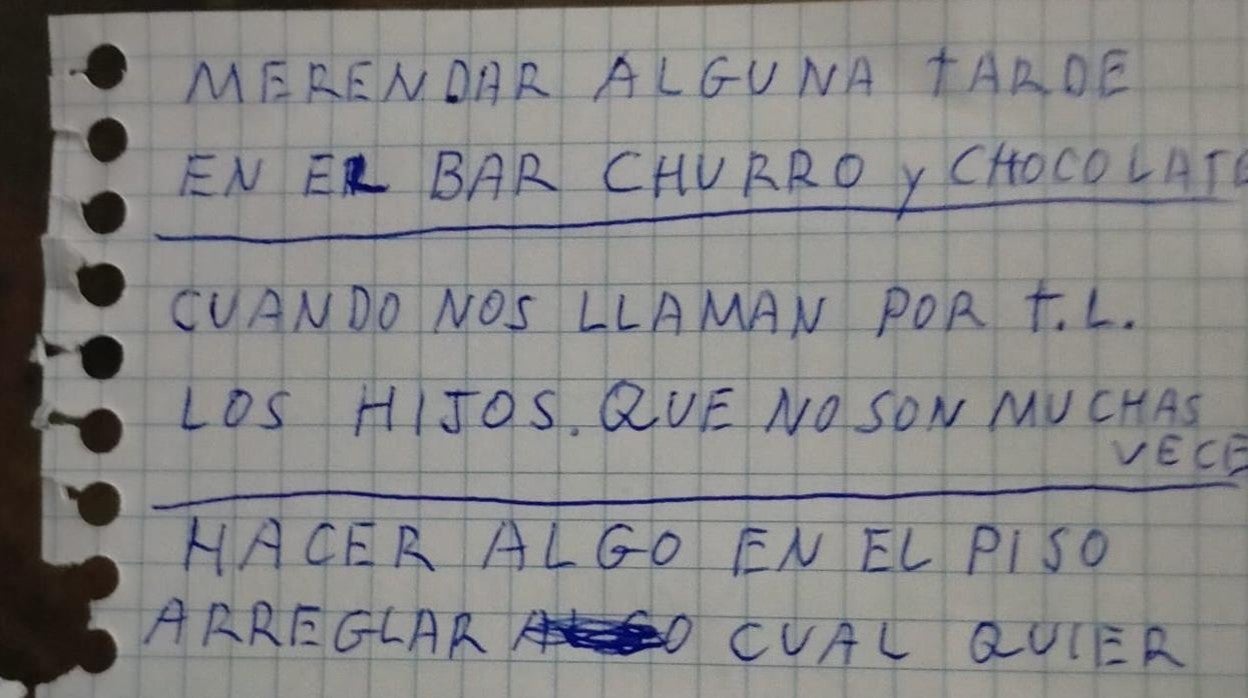 MERENDAR ALGUNA TARDE
EN EL BAR CHURRO y CHOCOLATE
CUANDO NOS LLAMAN POR T.L.
LOS HIJOS. QUE NO SON MUCHAS
VECE
HACER ALGO EN EL PISO
ARREGLAR CUAL QUIER